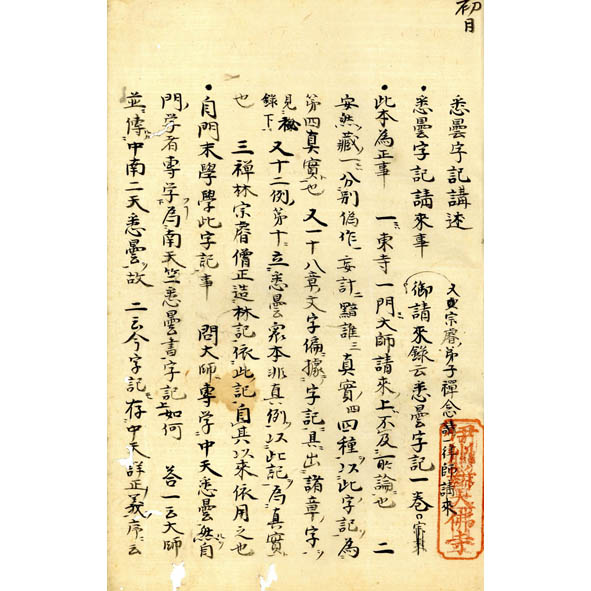 初日
悉曇字記講述
・悉曇字記請来事
又云宗睿弟子禅念律師請来
御請来録云悉曇字記一巻
・此本為正事 一東寺一門大師請来上不及所論也 二
安然藏一分別偽作二妄計三真実四四種以此字記為
第四真実也 又一十八章文字偏據字記具出諸章字
見録下 又十二例第十立悉曇衆本非真例以此記為真実
也 三禅林宗睿僧正造林記依此記自其以来依用之也
・自門末学学此字記事 問大師専学中天悉曇無自
門学者専学南天竺悉曇書字記如何 答一云大師
並傳中南二天悉曇故 二云今字記存中天詳正義序云
大佛寺